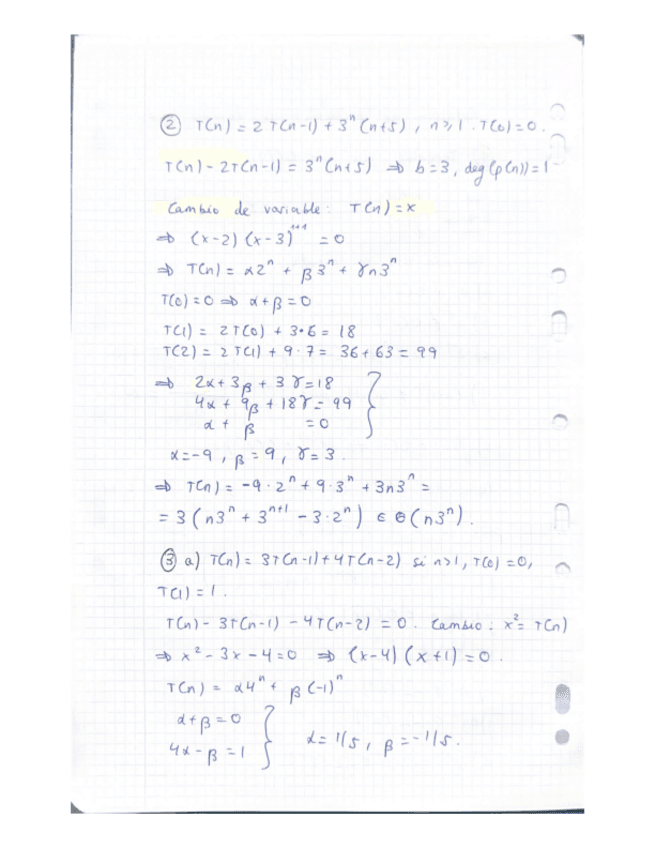 ② T(n) = 2T(n-1) + 3ⁿ(n+5), n≥1. T(0)=0.
T(n) - 2T(n-1) = 3ⁿ(n+5) ⇒ b=3, deg(p(n))=1
Cambio de variable: T(n)=x
⇒ (x-2)(x-3)¹⁺¹ = 0
⇒ T(n) = α2ⁿ + β3ⁿ + γn3ⁿ
T(0)=0 ⇒ α+β=0
T(1) = 2T(0) + 3·6 = 18
T(2) = 2T(1) + 9·7 = 36+63 = 99
⇒ 2α+3β+3γ=18
4α+9β+18γ=99
α+β =0
α=-9, β=9, γ=3.
⇒ T(n) = -9·2ⁿ + 9·3ⁿ + 3n3ⁿ =
= 3(n3ⁿ + 3ⁿ⁺¹ - 3·2ⁿ) ∈ Θ(n3ⁿ).
③ a) T(n) = 3T(n-1)+4T(n-2) si n>1, T(0)=0,
T(1)=1.
T(n) - 3T(n-1) - 4T(n-2) = 0. Cambio: x²=T(n)
⇒ x²-3x-4=0 ⇒ (x-4)(x+1)=0.
T(n) = α4ⁿ + β(-1)ⁿ
α+β=0
4α-β=1 } α=1/5, β=-1/5.